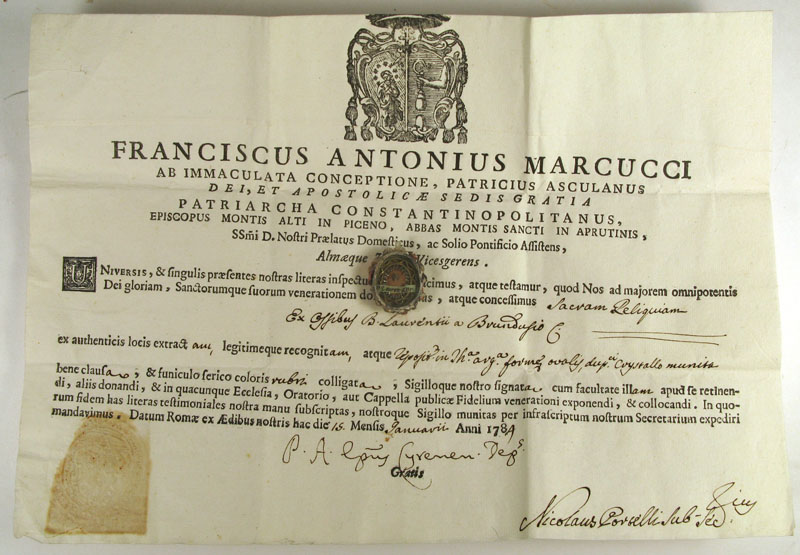 FRANCISCUS ANTONIUS MARCUCCI
AB IMMACULATA CONCEPTIONE, PATRICIUS ASCULANUS
DEI, ET APOSTOLICÆ SEDIS GRATIA
PATRIARCHA CONSTANTINOPOLITANUS,
EPISCOPUS MONTIS ALTI IN PICENO, ABBAS MONTIS SANCTI IN APRUTINIS,
SSmi D. Nostri Prælatus Domesticus, ac Solio Pontificio Assistens,
Almæque Vicesgerens.
UNIVERSIS, & singulis præsentes nostras literas inspectu cimus, atque testamur, quod Nos ad majorem omnipotentis
Dei gloriam, Sanctorumque suorum venerationem do as, atque concessimus Sacram Reliquiam
Ex Ossibus B. Laurentii a Brundusio C
ex authenticis locis extractam, legitimeque recognitam, atque reposi in Tha arga formæ ovalis, Crystallo munita
bene clausa, & funiculo serico coloris rubri colligata, Sigilloque nostro signata cum facultate illam apud se retinen-
di, aliis donandi, & in quacunque Ecclesia, Oratorio, aut Cappella publicæ Fidelium venerationi exponendi, & collocandi. In quo-
rum fidem has literas testimoniales nostra manu subscriptas, nostroque Sigillo munitas per infrascriptum nostrum Secretarium expediri
mandavimus. Datum Romæ ex Ædibus nostris hac die 15 Mensis Januarii Anni 1784
P. A. Epus Cyrenen. Degs
Gratis
Nicolaus Porcelli Sub-Sec